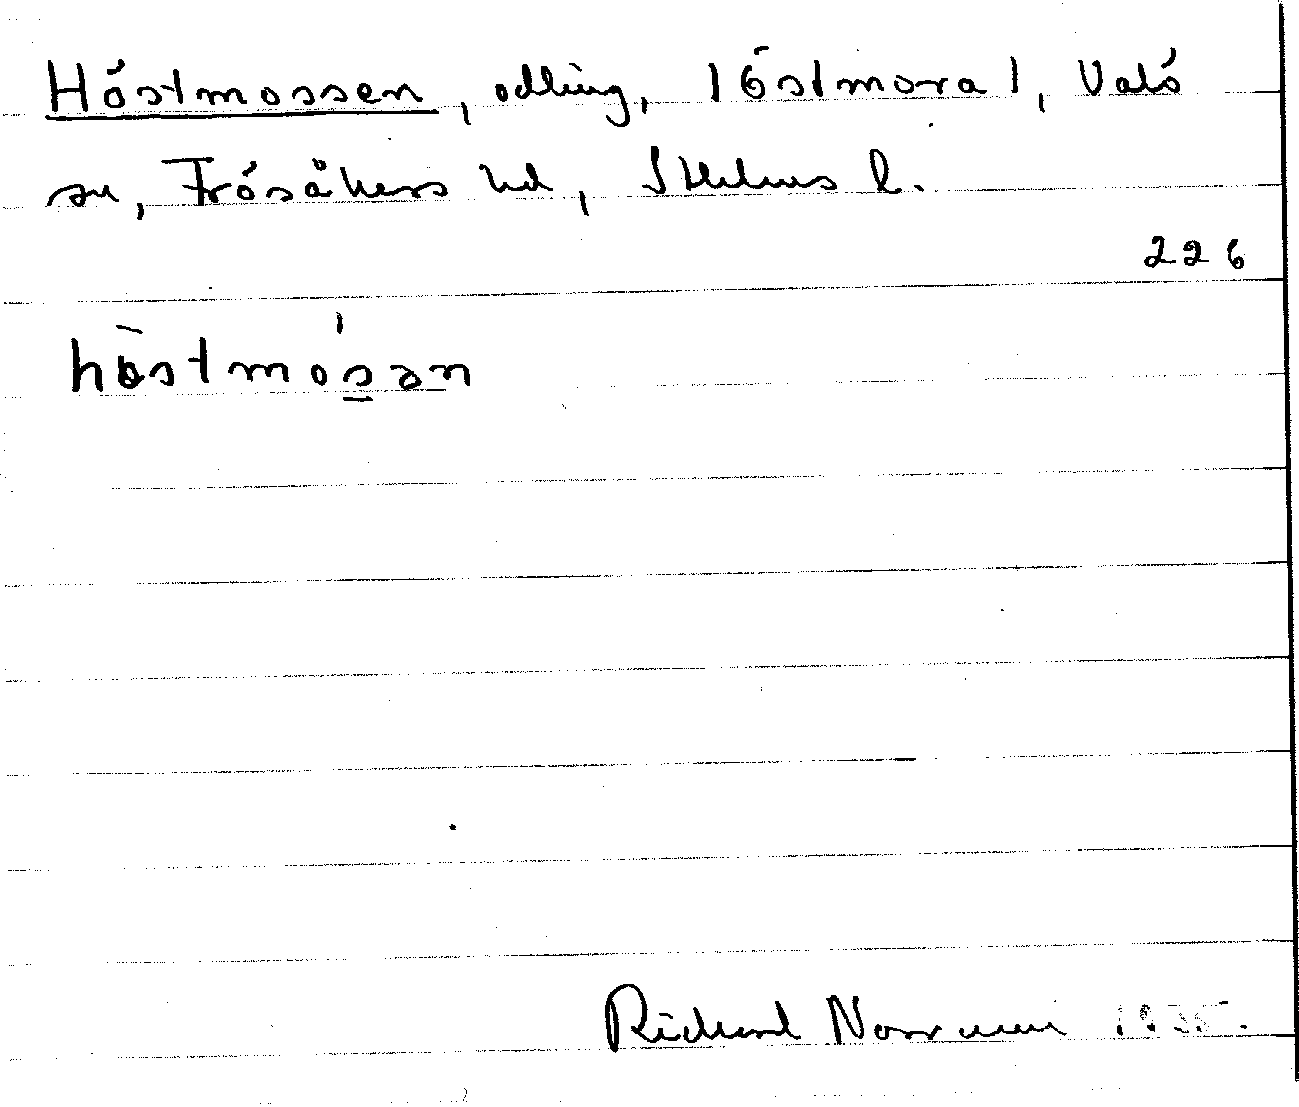 Höstmossen, odling, 1 Östmora 1, Valö
sn, Frösåkers hd, Sthlms l.
226
hòstmósan
Richard Norrman 1935.